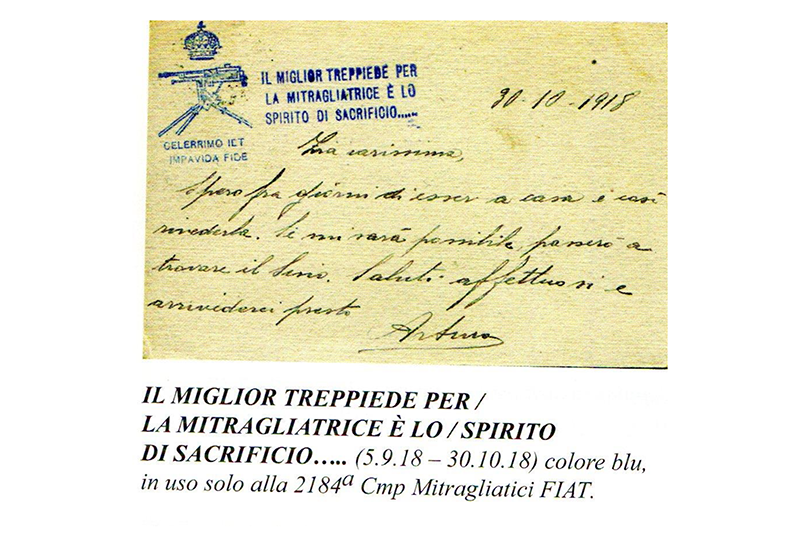 IL MIGLIOR TREPPIEDE PER
LA MITRAGLIATRICE È LO
SPIRITO DI SACRIFICIO.....
CELERRIMO IET
IMPAVIDA FIDE
30-10-1918
Zia carissima,
Spero fra giorni di esser a casa e così
rivederla. Se mi sarà possibile, passerò a
trovare il Siro. Saluti affettuosi e
arrivederci presto
Arturo
IL MIGLIOR TREPPIEDE PER /
LA MITRAGLIATRICE È LO / SPIRITO
DI SACRIFICIO..... (5.9.18 – 30.10.18) colore blu,
in uso solo alla 2184ª Cmp Mitragliatici FIAT.